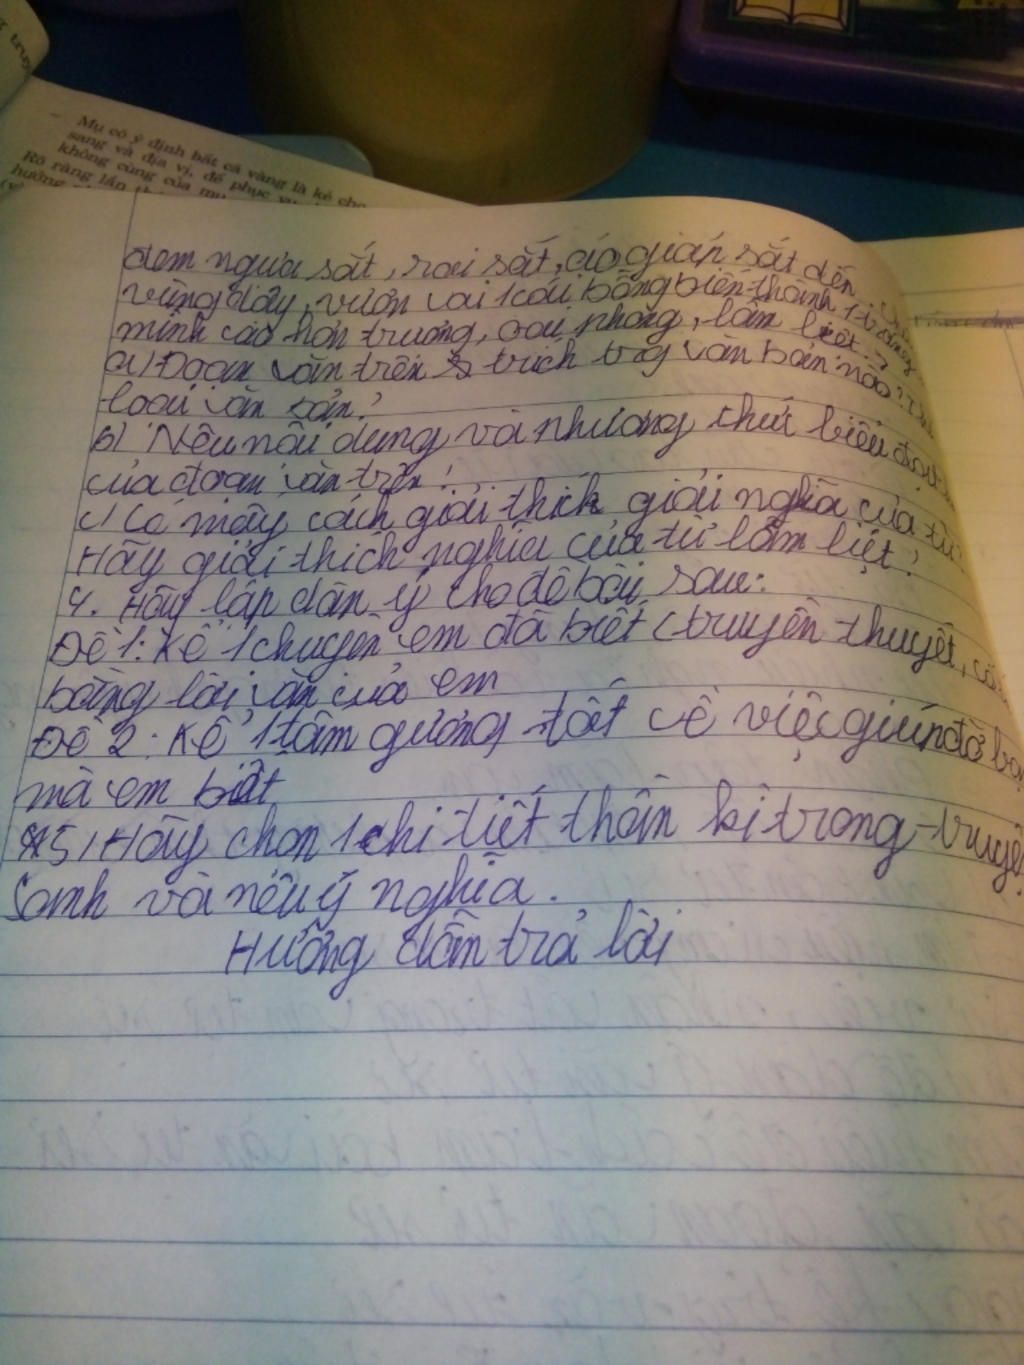 Mụ có ý định bắt cá vàng là kẻ cho
sang và địa vị, để phục vụ
không cùng của mụ
Rõ ràng lần
hưởng
đem ngựa sắt, roi sắt, áo giáp sắt đến.
vùng dậy, vươn vai 1 cái bỗng biến thành 1 tráng
mình cao hơn trượng, oai phong, lẫm liệt.
a) Đoạn văn trên trích trg văn bản nào?
loại văn bản?
b) Nêu nội dung và phương thức biểu đạt
của đoạn văn trên!
c) Có mấy cách giải thích giải nghĩa của từ?
Hãy giải thích nghĩa của từ lẫm liệt!
4. Hãy lập dàn ý cho đề bài sau:
Đề 1: Kể 1 chuyện em đã biết (truyền thuyết,
bằng lời văn của em
Đề 2: Kể 1 tấm gương tốt về việc giúp đỡ
mà em biết
5) Hãy chọn 1 chi tiết thần kì trong truyện
Sanh và nêu ý nghĩa.
Hướng dẫn trả lời